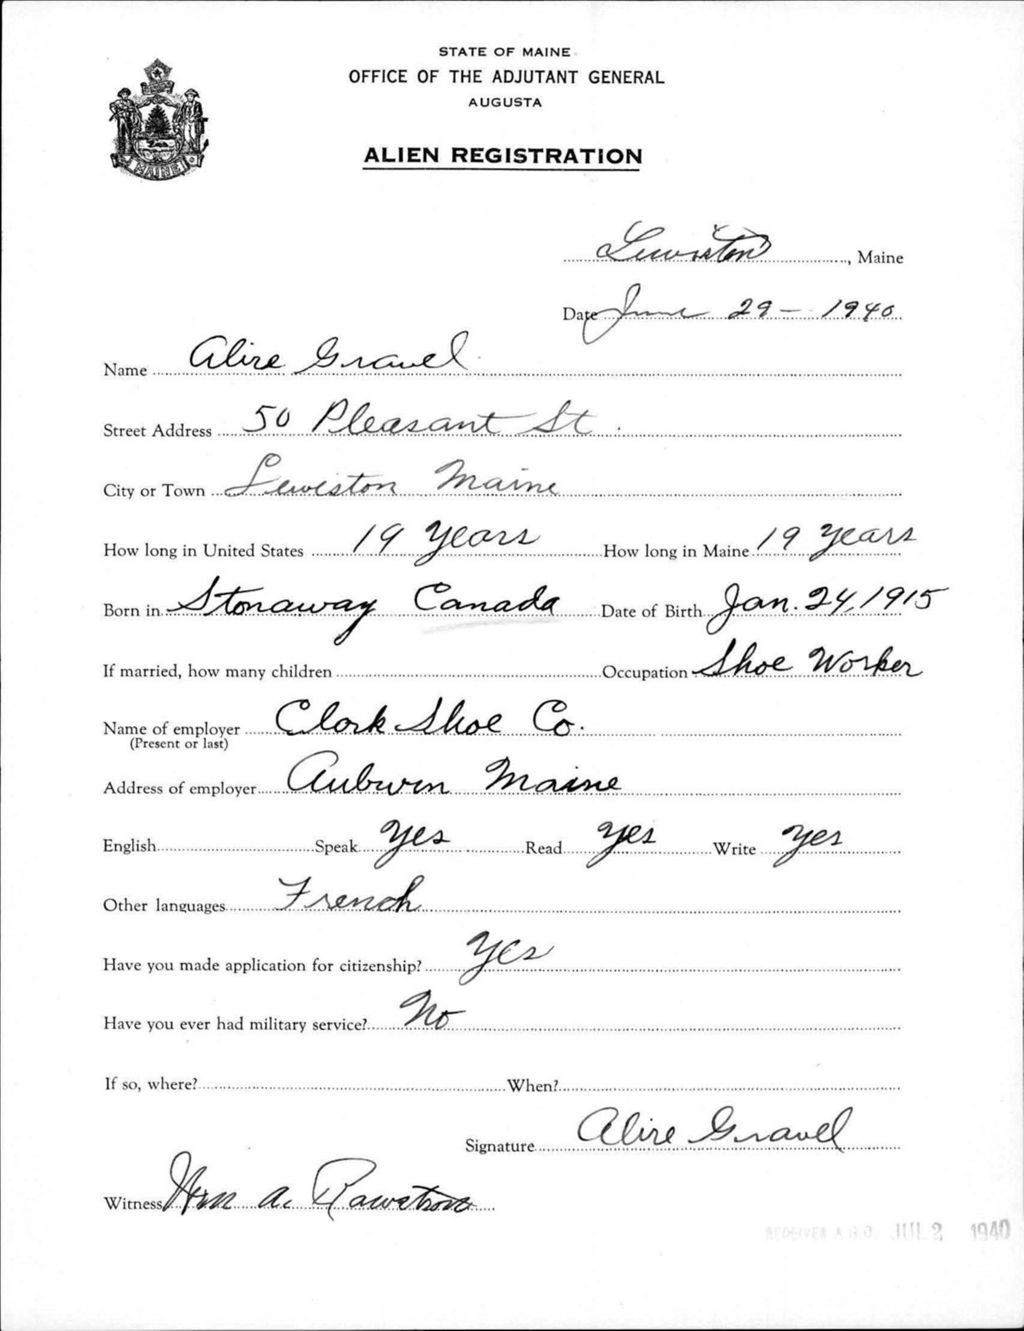 STATE OF MAINE
OFFICE OF THE ADJUTANT GENERAL
AUGUSTA
ALIEN REGISTRATION
MAINE
Lewiston, Maine
Date June 29 - 1940
Name Alire Gravel
Street Address 50 Pleasant St.
City or Town Lewiston Maine
How long in United States 19 Years How long in Maine 19 Years
Born in Stonaway Canada Date of Birth Jan. 24, 1915
If married, how many children Occupation Shoe Worker
Name of employer Clark Shoe Co.
(Present or last)
Address of employer Auburn Maine
English Speak Yes Read Yes Write Yes
Other languages French
Have you made application for citizenship? Yes
Have you ever had military service? No
If so, where? When?
Signature Alire Gravel
Witness Wm A. Rawstron
RECEIVED A.G.O. JUL 2 1940